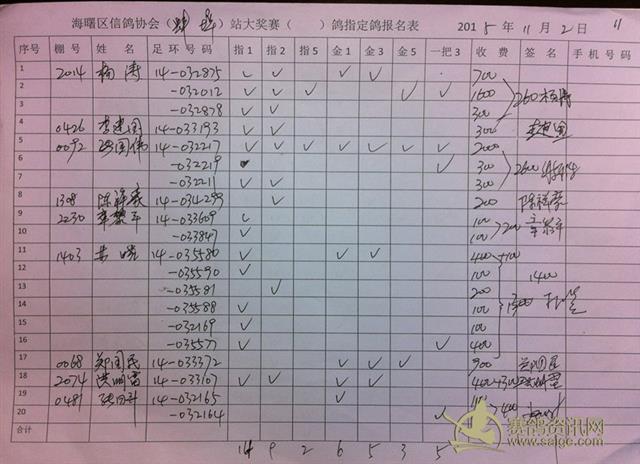 海曙区信鸽协会( )站大奖赛( )鸽指定鸽报名表 2015年11月2日
序号 棚号 姓名 足环号码 指1 指2 指5 金1 金3 金5 一把3 收费 签名 手机号码
1 2014 杨涛 14-032875 ✓ ✓ ✓ ✓ 700
2 -032012 ✓ ✓ ✓ ✓ ✓ 1600 2600 杨涛
3 -032878 ✓ ✓ 300
4 0426 李建国 14-033193 ✓ ✓ 300 李建国
5 0092 张国伟 14-032217 ✓ ✓ ✓ ✓ ✓ ✓ ✓ 2000
6 -032219 ✓ ✓ 300 2600
7 -032211 ✓ ✓ 300
8 1308 陈祥豪 14-034293 ✓ 200 陈祥豪
9 2230 14-033609 ✓ 100 200
10 -033847 ✓ 100
11 1403 14-035580 ✓ ✓ ✓ 400 +100
12 -035590 ✓ 100 1400
13 -035581 ✓ 200
14 -035588 ✓ 100
15 -032169 ✓ 100
16 -035577 ✓ ✓ 400
17 0068 郑国民 14-033372 ✓ ✓ ✓ 900 郑国民
18 2074 洪明雷 14-033107 ✓ ✓ ✓ ✓ 400+300 洪明雷
19 0481 14-032165 ✓ 400
20 -032164 ✓
合计
14 9 2 6 5 3 5
赛鸽资讯网
www.saige.com